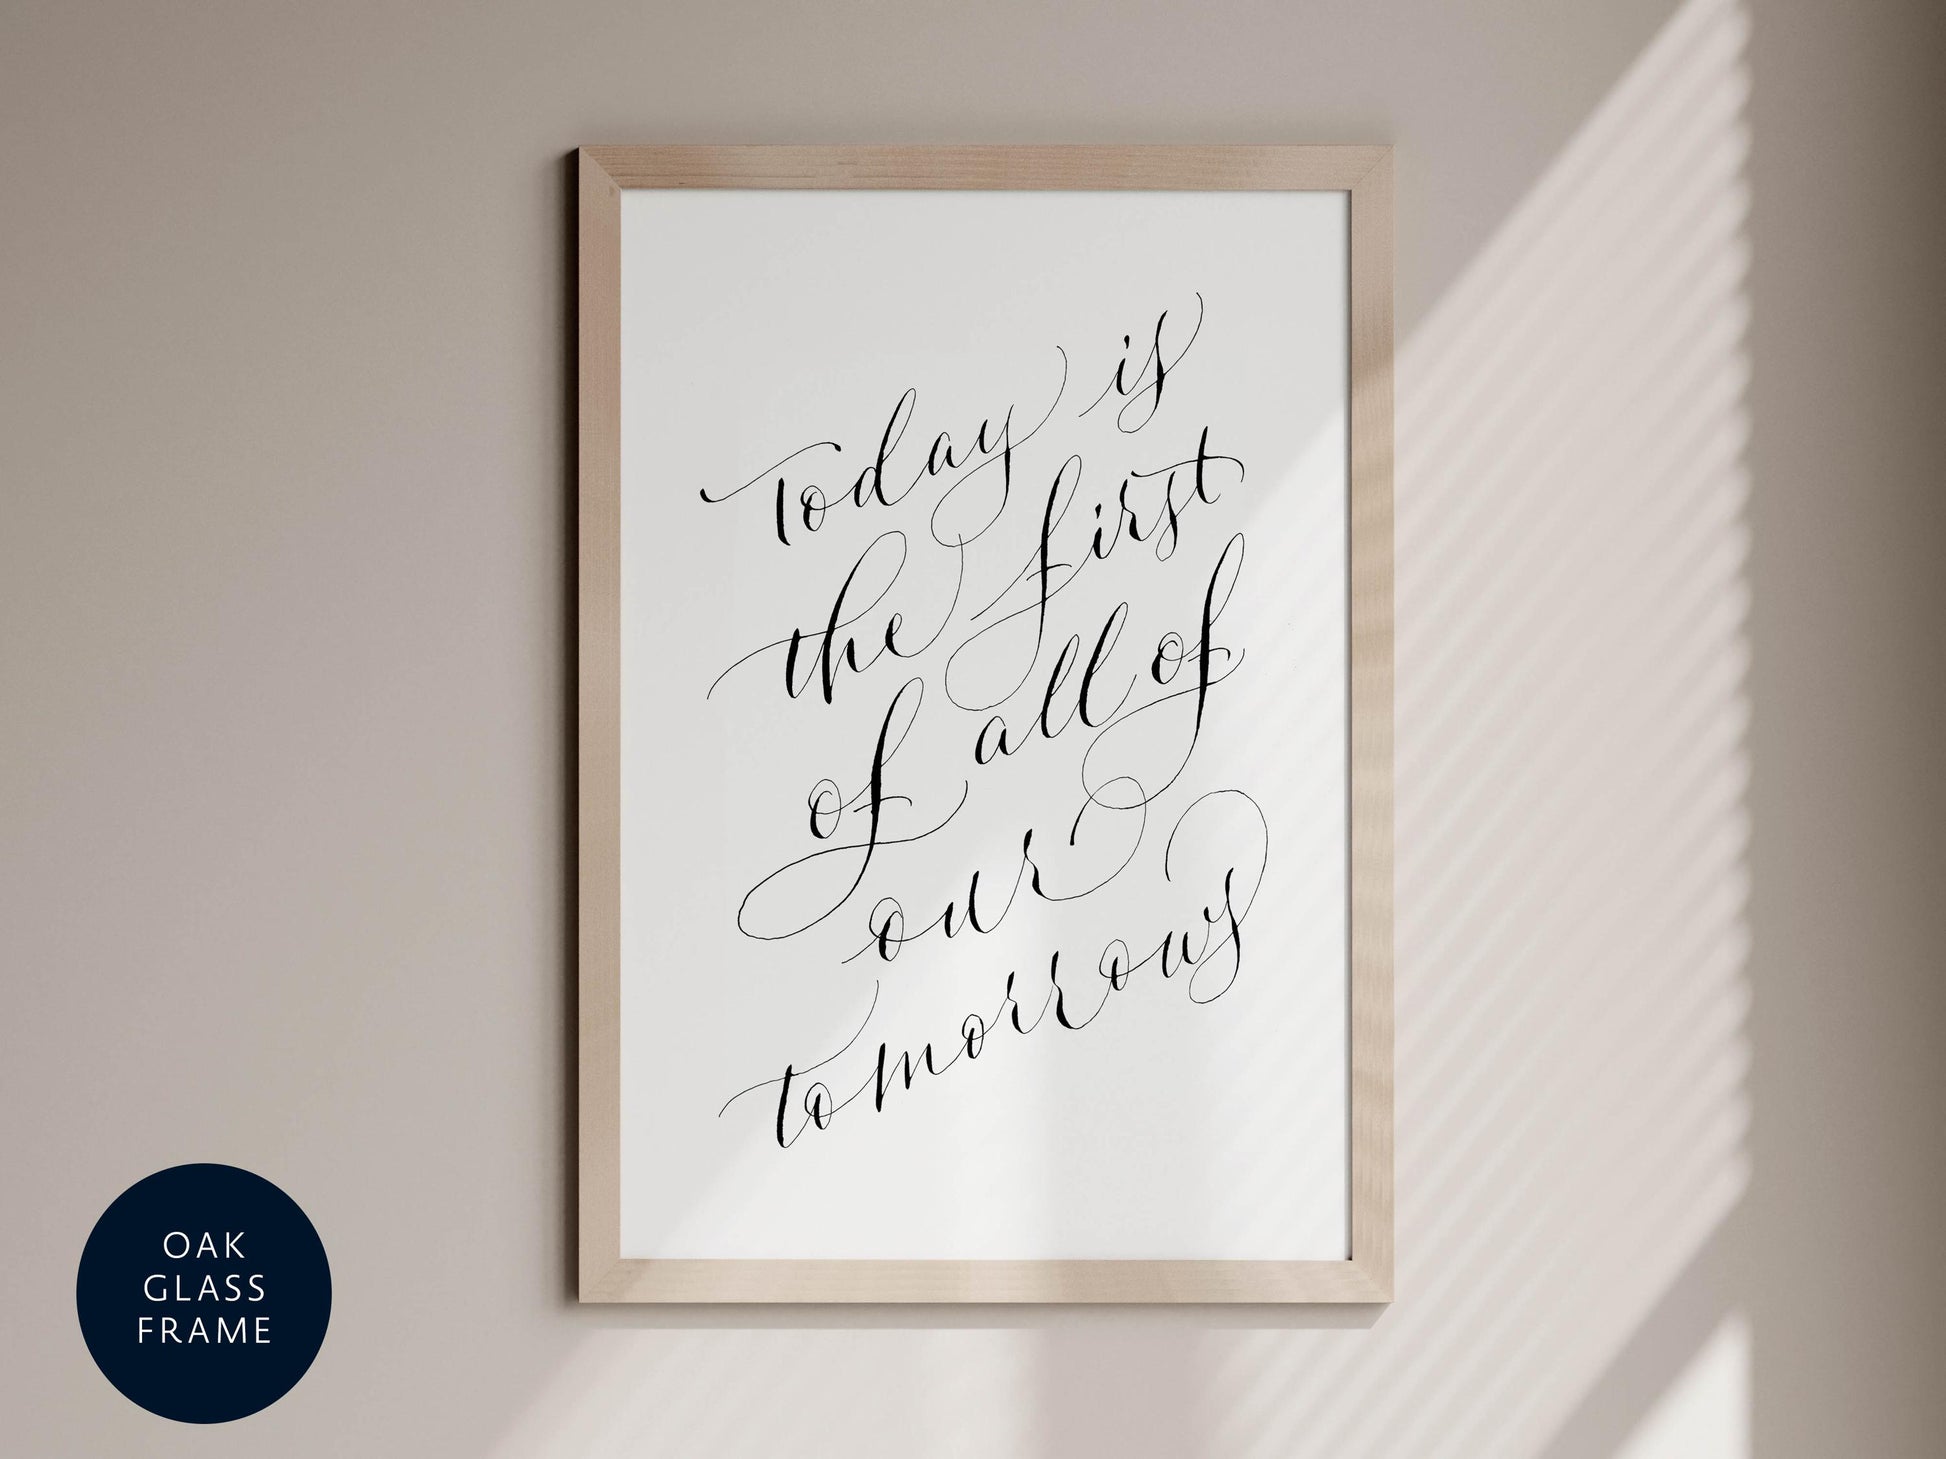 Today is
the first
of all of
our
tomorrows
OAK
GLASS
FRAME